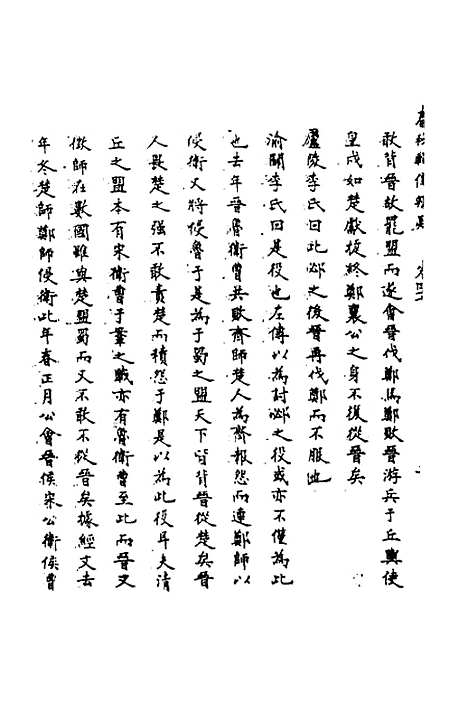 春秋輯傳辨疑　卷四
敢背晉故罷盟而遂會晉伐鄭馮鄭敗晉游兵于丘輿使
皇戌如楚獻捷終鄭襄公之身不復從晉矣
廬陵李氏曰此邲之後晉再伐鄭而不服也
渝關李氏曰是役也左傳以為討邲之役或亦不僅為此
也去年晉魯衛曹共敗齊師楚人為齊報怨而連鄭師以
侵衛又將侵魯于是為于蜀之盟天下皆背晉從楚矣晉
人畏楚之强不敢責楚而積怨于鄭是以為此役耳夫清
丘之盟本有宋衛曹于鞌之戰亦有魯衛曹至此而晉又
徵師在數國雖與楚盟蜀而又不敢不從晉矣據經文去
年冬楚師鄭師侵衛此年春正月公會晉侯宋公衛侯曹